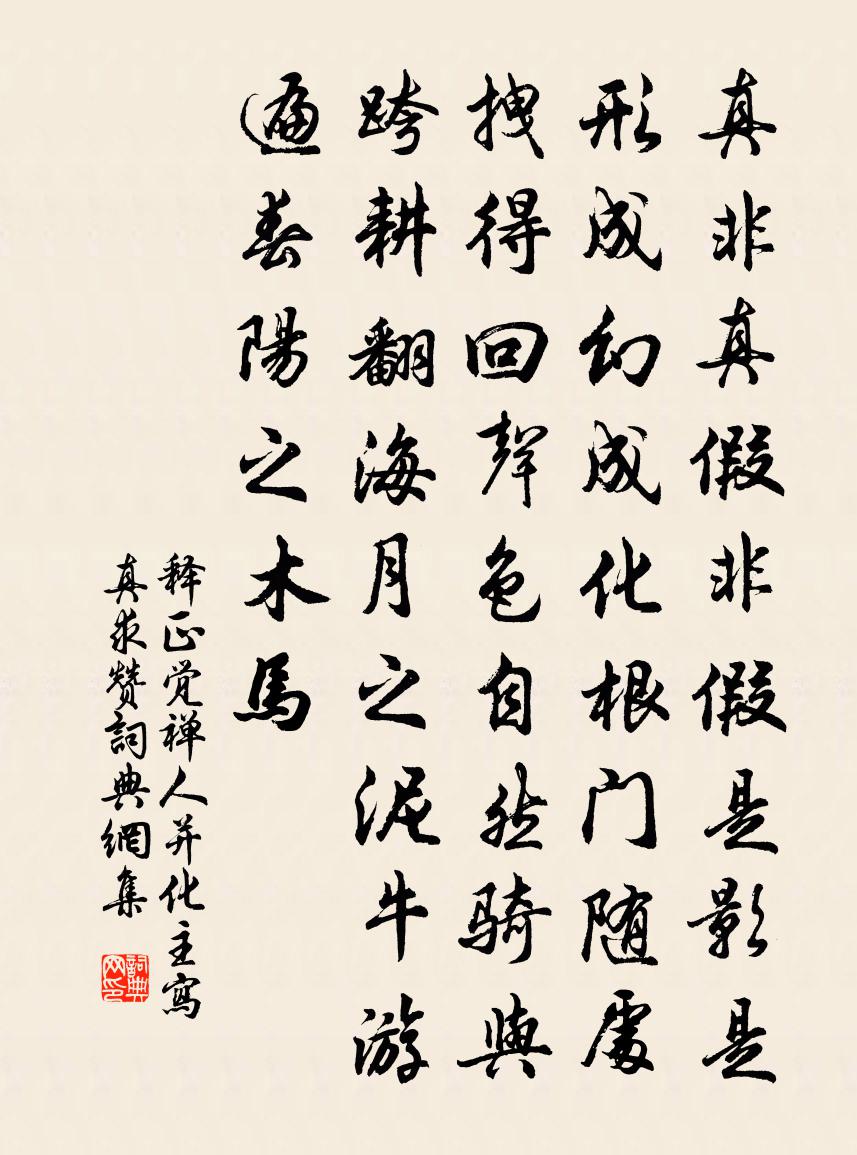 真非真假非假是影是
形成幻成化根门随處
拽得回聲色自然騎與
跨耕翻海月之泥牛游
遍春陽之木馬
释正觉禅人并化主寫
真求赞詞典網集
詞典网印